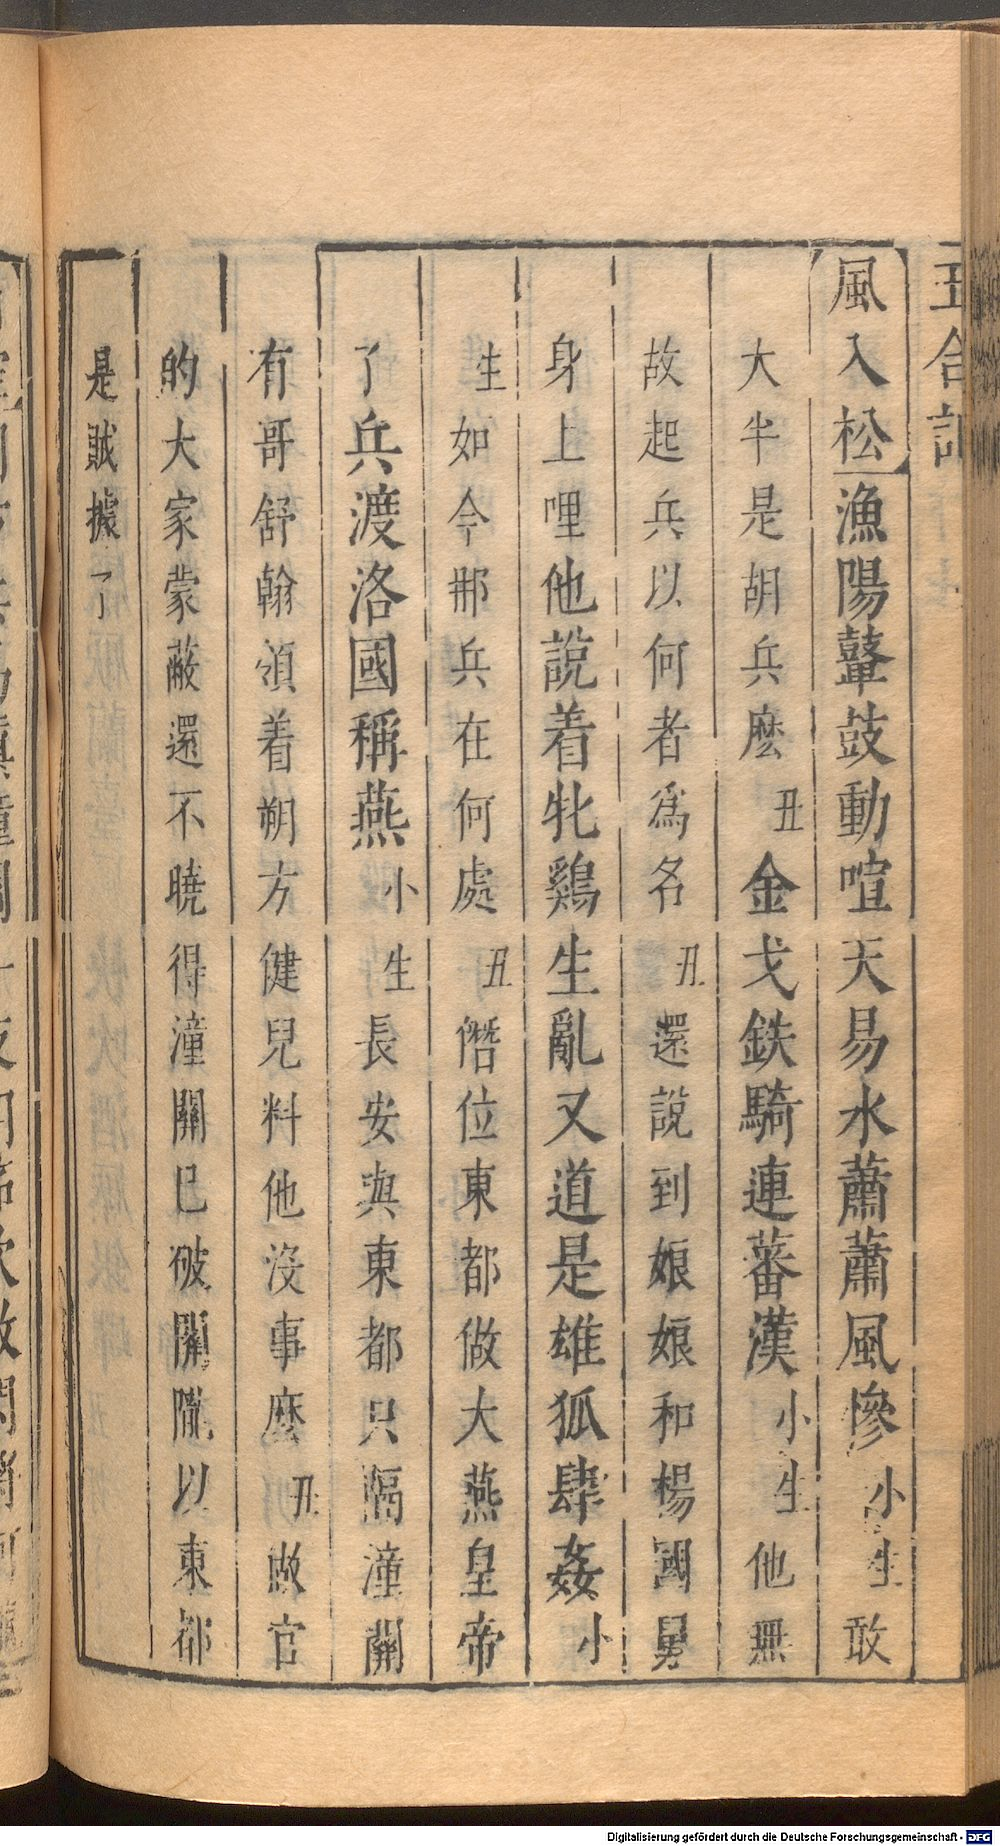 風入松漁陽鼙鼓動喧天易水蕭蕭風慘小生敢
大半是胡兵麽丑金戈鉄騎連蕃漢小生他無
故起兵以何者爲名丑還說到娘娘和楊國舅
身上哩他說着牝鷄生亂又道是雄狐肆姦小
生如今那兵在何處丑僭位東都做大燕皇帝
了兵渡洛國稱燕小生長安與東都只隔潼關
有哥舒翰領着朔方健兒料他沒事麽丑做官
的大家蒙蔽還不曉得潼關已破關隴以東都
是賊據了
Digitalisierung gefördert durch die Deutsche Forschungsgemeinschaft - DFG